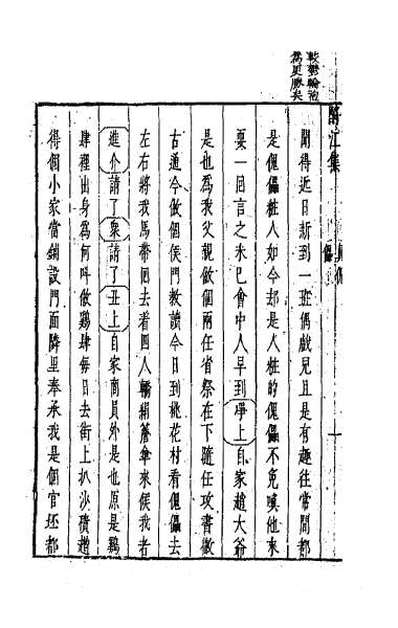 較鬱輪袍
為更勝矣
酹江集
傀儡
一
聞得近日新到一班偶戲兒且是有趣往常間都
是傀儡粧人如今却是人粧的傀儡不免喚他來
耍一回言之未已會中人早到淨上自家趙大爺
是也為我父親做個兩任省祭在下隨任攻書徹
古通今做個侯門教讀今日到桃花村看傀儡去
左右將我馬帶回去看四人轎糊蒼傘來俟我者
進介請了衆請了丑上自家商員外是也原是鷄
肆裡出身為何呌做鷄肆每日去街上扒沙積趲
得個小家當鋪設門面隣里奉承我是個官坯都